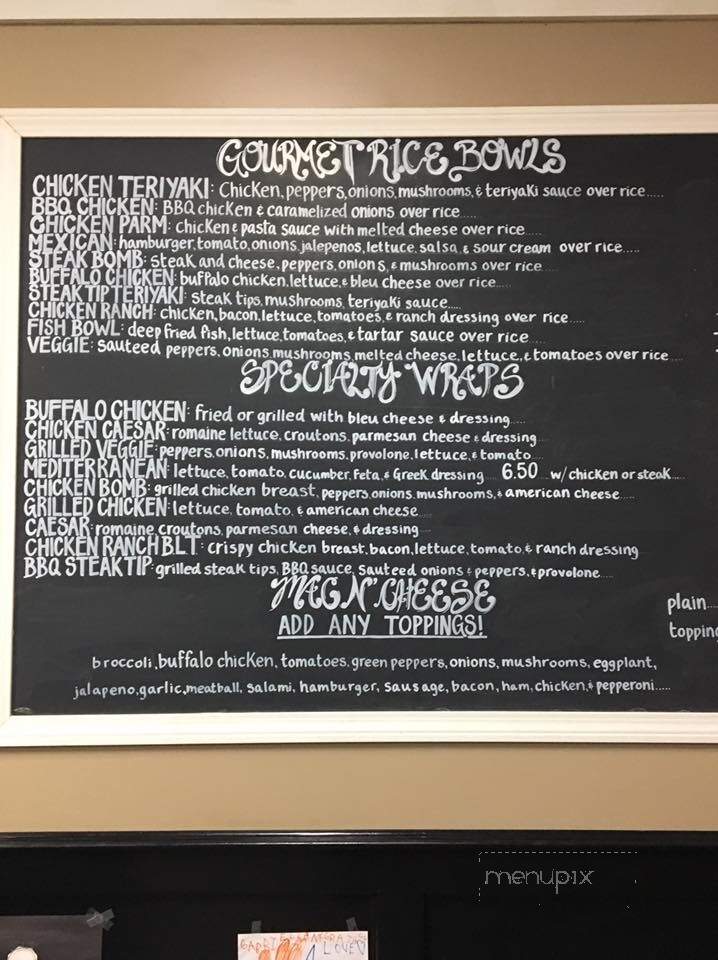 GOURMET RICE BOWLS
CHICKEN TERIYAKI: Chicken, peppers, onions, mushrooms, & teriyaki sauce over rice.....
BBQ CHICKEN: BBQ chicken & caramelized onions over rice....
CHICKEN PARM: chicken & pasta sauce with melted cheese over rice.....
MEXICAN: hamburger, tomato, onions, jalepenos, lettuce, salsa, & sour cream over rice.....
STEAK BOMB: steak and cheese, peppers, onions, & mushrooms over rice
BUFFALO CHICKEN: buffalo chicken, lettuce, & bleu cheese over rice.....
STEAK TIP TERIYAKI: steak tips, mushrooms, teriyaki sauce.....
CHICKEN RANCH: chicken, bacon, lettuce, tomatoes, & ranch dressing over rice.....
FISH BOWL: deep fried fish, lettuce, tomatoes, & tartar sauce over rice.....
VEGGIE: sauteed peppers, onions, mushrooms, melted cheese, lettuce, & tomatoes over rice.....
SPECIALTY WRAPS
BUFFALO CHICKEN: fried or grilled with bleu cheese & dressing.....
CHICKEN CAESAR: romaine lettuce, croutons, parmesan cheese & dressing
GRILLED VEGGIE: peppers, onions, mushrooms, provolone, lettuce, & tomato....
MEDITERRANEAN: lettuce, tomato, cucumber, feta, & Greek dressing 6.50 w/ chicken or steak....
CHICKEN BOMB: grilled chicken breast, peppers, onions, mushrooms, & american cheese.....
GRILLED CHICKEN: lettuce, tomato, & american cheese.....
CAESAR: romaine, croutons, parmesan cheese, & dressing....
CHICKEN RANCH BLT: crispy chicken breast, bacon, lettuce, tomato & ranch dressing
BBQ STEAK TIP: grilled steak tips, BBQ sauce, sauteed onions & peppers, & provolone....
MAC N' CHEESE
ADD ANY TOPPINGS!
plain...
topping
broccoli, buffalo chicken, tomatoes, green peppers, onions, mushrooms, eggplant,
jalapeno, garlic, meatball, salami, hamburger, sausage, bacon, ham, chicken, & pepperoni.....
menupix